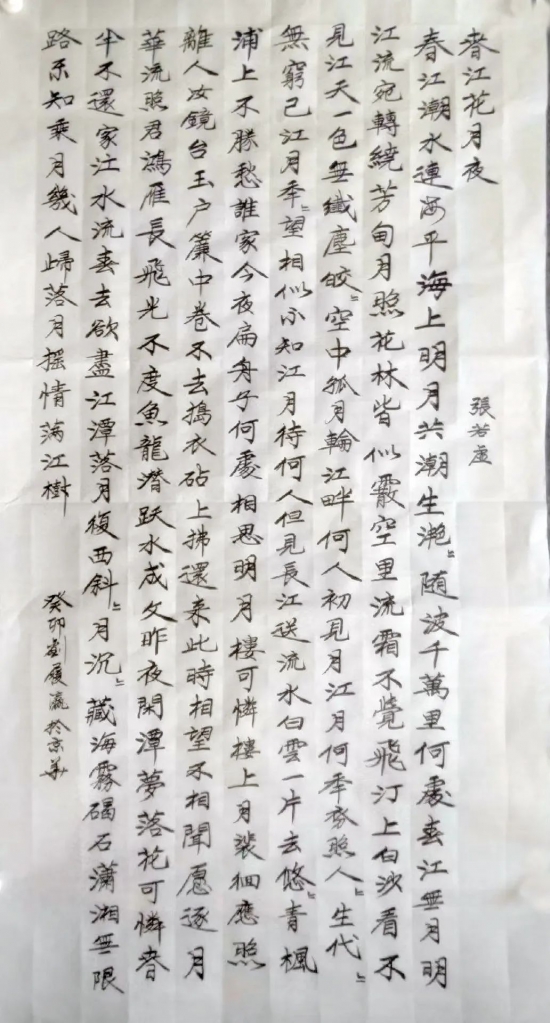 春江花月夜
張若虛
春江潮水連海平海上明月共潮生灔〻随波千萬里何處春江無月明
江流宛轉繞芳甸月照花林皆似霰空里流霜不覺飛汀上白沙看不
見江天一色無纖塵皎〻空中孤月輪江畔何人初見月江月何年初照人〻生代〻
無窮已江月年〻望相似不知江月待何人但見長江送流水白雲一片去悠〻青楓
浦上不勝愁誰家今夜扁舟子何處相思明月樓可憐樓上月裴徊應照
離人妝鏡台玉户簾中卷不去搗衣砧上拂還来此時相望不相聞愿逐月
華流照君鴻雁長飛光不度魚龍潛跃水成文昨夜閑潭夢落花可憐春
半不還家江水流春去欲盡江潭落月復西斜〻月沉〻藏海霧碣石瀟湘無限
路不知乘月幾人歸落月摇情滿江樹
癸卯劉履瀛於京華